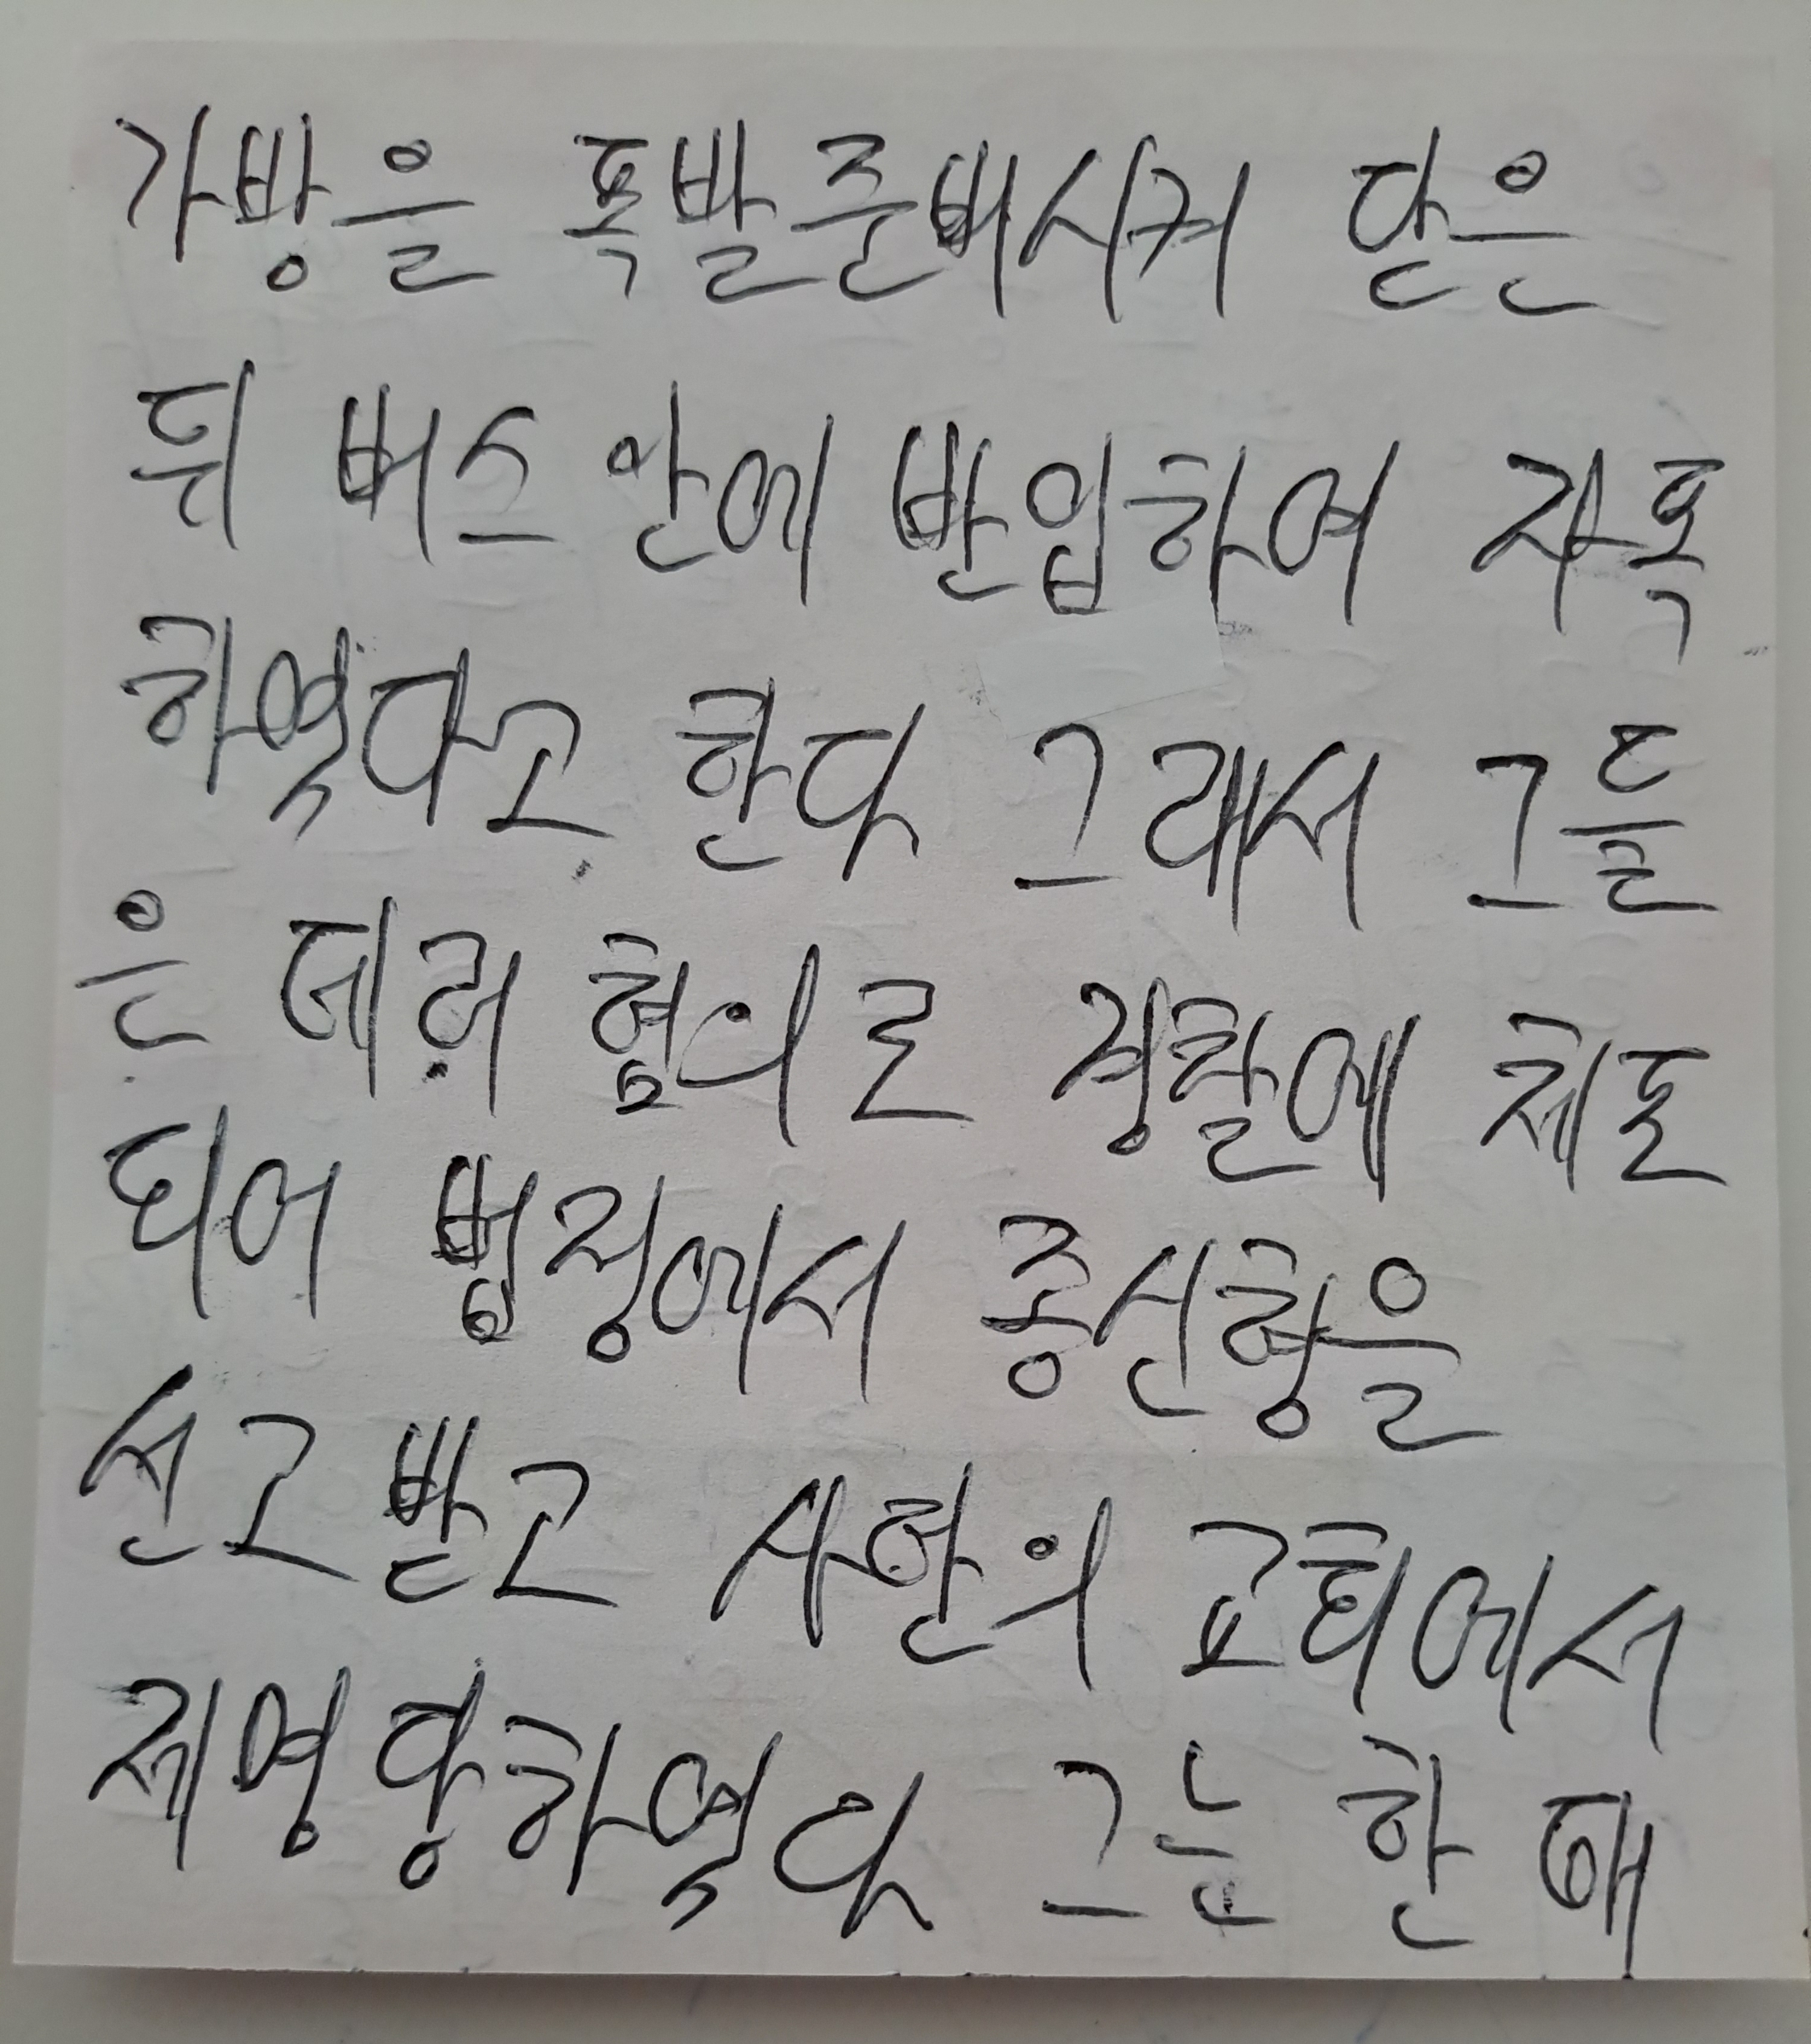 가방을 폭발준비시켜 닫은
뒤 버스 안에 반입하여 자폭
하였다고 한다 그래서 그들
은 테러 혐의로 경찰에 체포
되어 법정에서 종신형을
선고 받고 사탄의 교회에서
제명 당하였다 그는 한 때